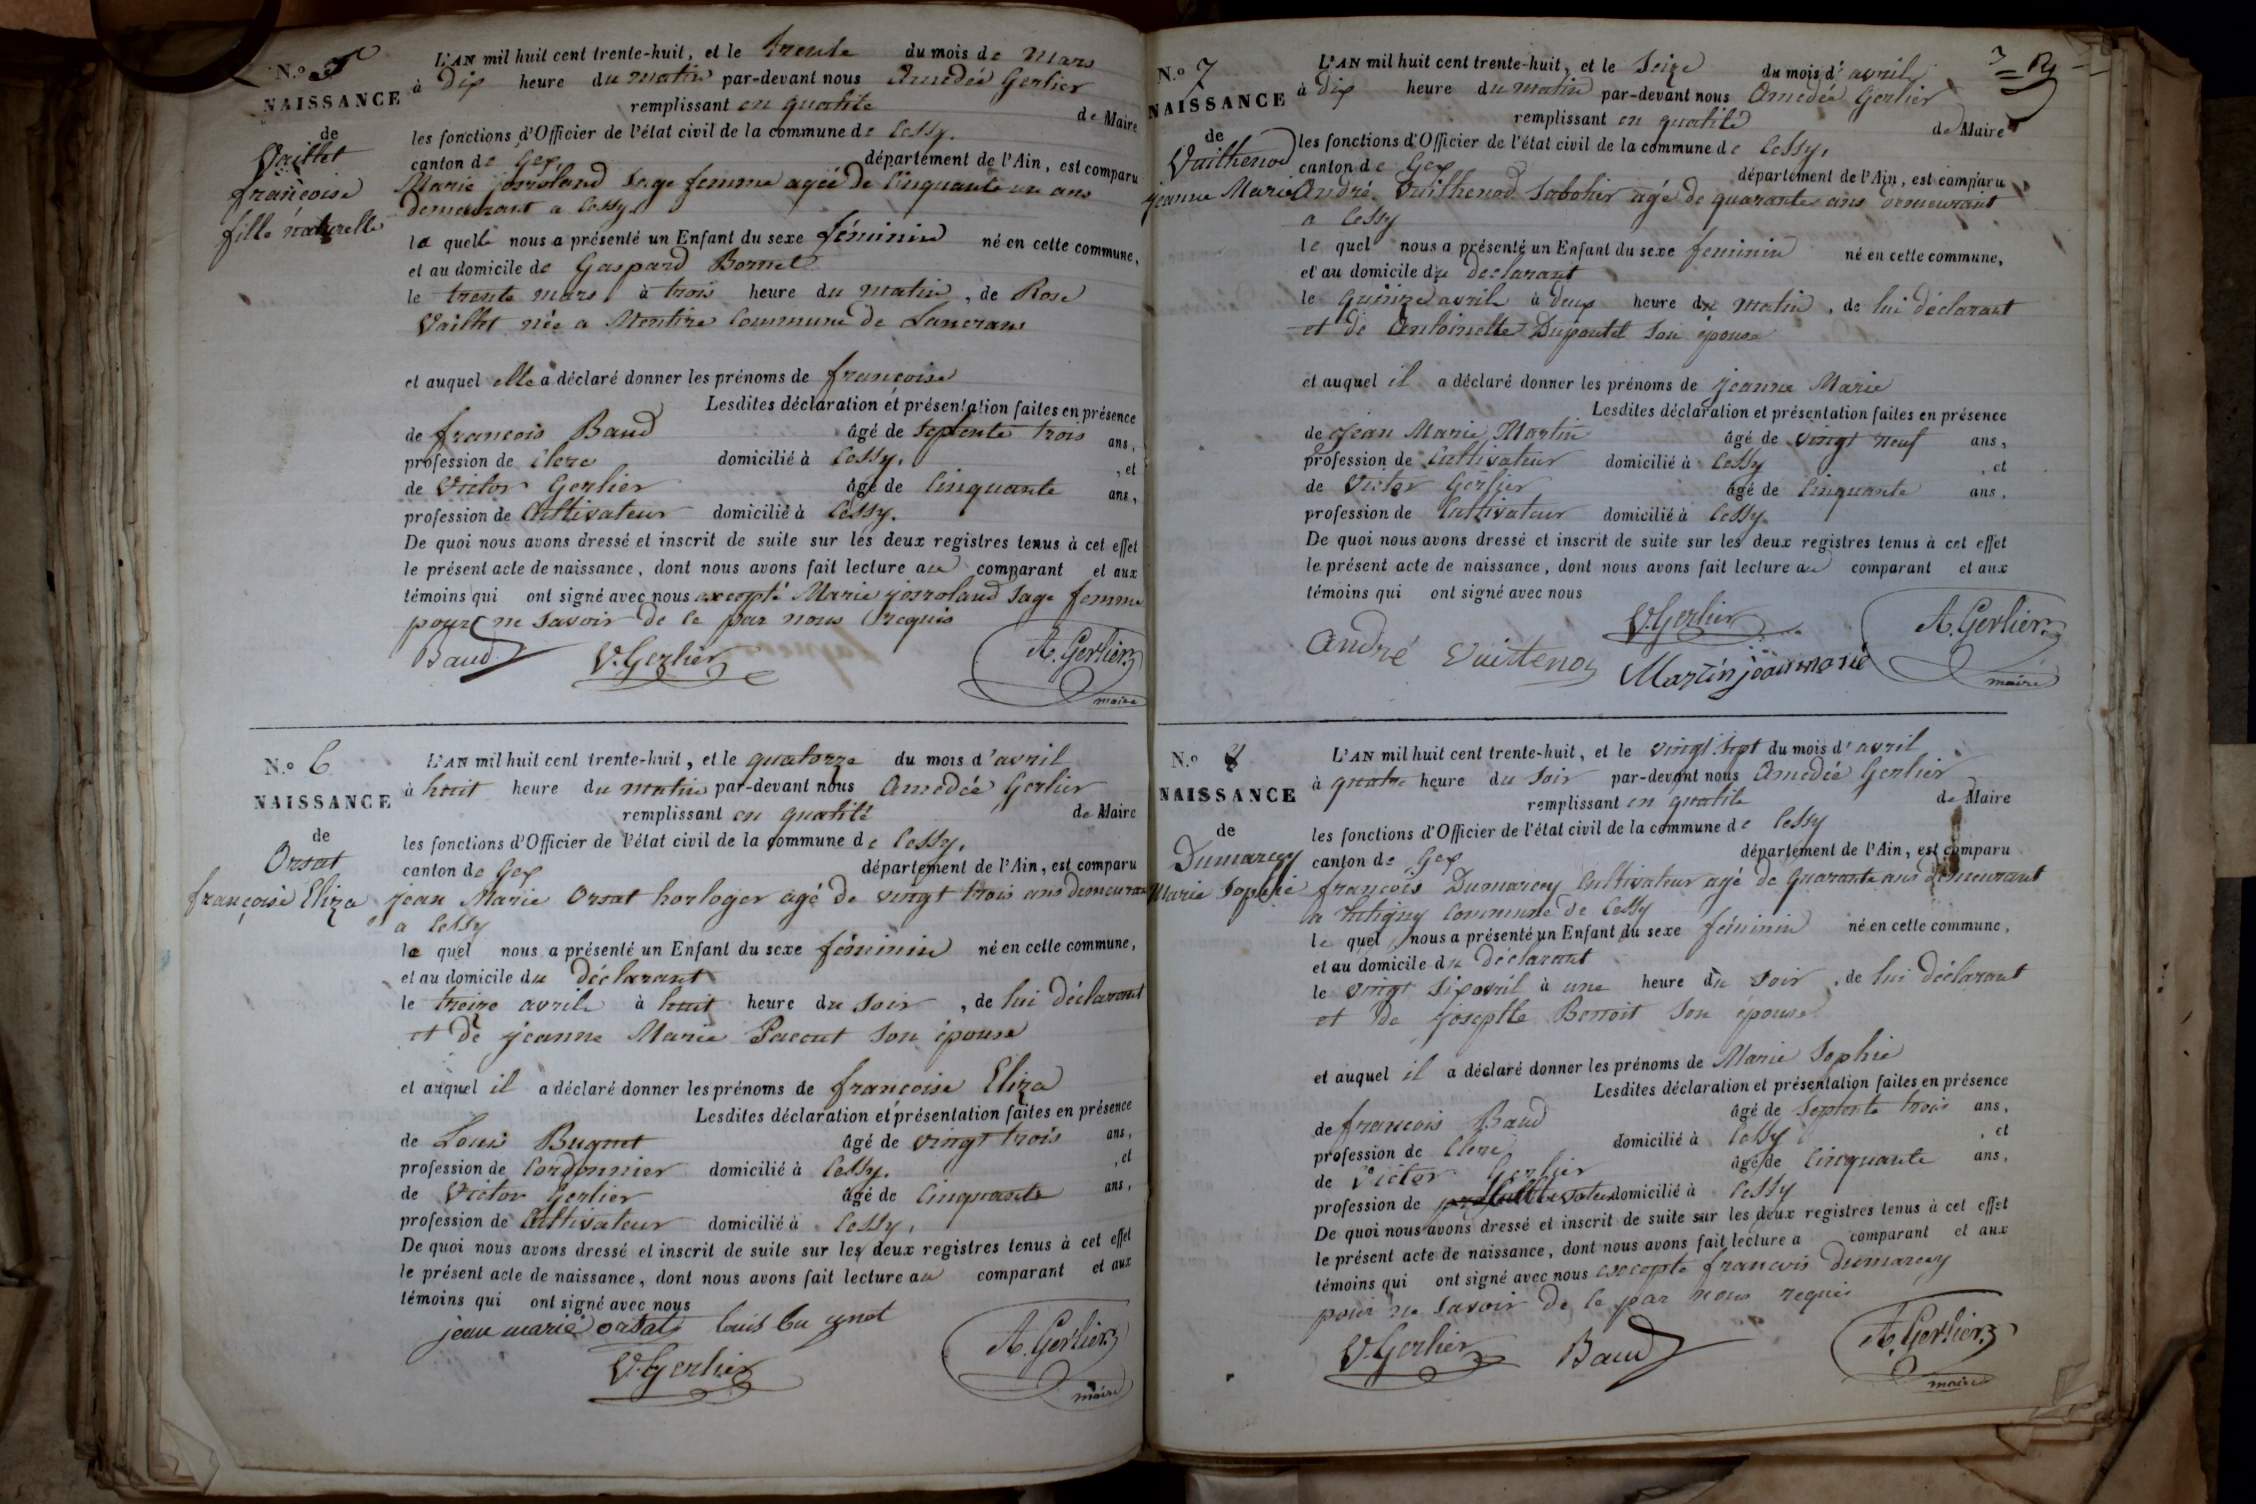 N.o 5
NAISSANCE
de
Vaillet
françoise
fille naturelle
L'AN mil huit cent trente-huit, et le trente du mois de Mars
à Dix heure du matin par-devant nous Amédée Gerlier
remplissant en qualité de Maire
les fonctions d'Officier de l'état civil de la commune de Cessy.
canton de Gex département de l'Ain, est comparu
Marie josroland Sage femme agée de Cinquante un ans
demeurant a Cessy
la quelle nous a présenté un Enfant du sexe féminin né en cette commune,
et au domicile de Gaspard Bornet
le trente mars à trois heure du matin, de Rose
Vaillet née a Mentire Commune de Lancrans
et auquel elle a déclaré donner les prénoms de françoise
Lesdites déclaration et présentation faites en présence
de francois Baud âgé de Septente trois ans,
profession de Clerc domicilié à Cessy, , et
de Victor Gerlier âgé de Cinquante ans,
profession de Cultivateur domicilié à Cessy.
De quoi nous avons dressé et inscrit de suite sur les deux registres tenus à cet effet
le présent acte de naissance, dont nous avons fait lecture au comparant et aux
témoins qui ont signé avec nous excepté Marie josroland Sage femme
pour ne Savoir de ce par nous requis
Baud V. Gerlier A. Gerlier
maire
N.o 6
NAISSANCE
de
Orsat
françoise Eliza
L'AN mil huit cent trente-huit, et le quatorze du mois d'avril
à huit heure du matin par-devant nous Amédée Gerlier
remplissant en qualité de Maire
les fonctions d'Officier de l'état civil de la commune de Cessy.
canton de Gex département de l'Ain, est comparu
jean Marie Orsat horloger agé de vingt trois ans demeurant
a Cessy
le quel nous a présenté un Enfant du sexe féminin né en cette commune,
et au domicile du Déclarant
le treize avril à huit heure du Soir, de lui Déclarant
et de jeanne Marie Pacout Son épouse
et auquel il a déclaré donner les prénoms de françoise Eliza
Lesdites déclaration et présentation faites en présence
de Louis Bugnet âgé de vingt trois ans,
profession de Cordonnier domicilié à Cessy. , et
de Victor Gerlier âgé de Cinquante ans,
profession de Cultivateur domicilié à Cessy,
De quoi nous avons dressé et inscrit de suite sur les deux registres tenus à cet effet
le présent acte de naissance, dont nous avons fait lecture au comparant et aux
témoins qui ont signé avec nous
jean marie orsat louis bu gnot
V. Gerlier A. Gerlier
maire
3 = R
N.o 7
NAISSANCE
de
Vuithenod
jeanne Marie
L'AN mil huit cent trente-huit, et le Seize du mois d'avril
à Dix heure du matin par-devant nous Amédée Gerlier
remplissant en qualité de Maire
les fonctions d'Officier de l'état civil de la commune de Cessy,
canton de Gex département de l'Ain, est comparu
André Vuithenod Sabotier agé de quarante ans demeurant
a Cessy
le quel nous a présenté un Enfant du sexe feminin né en cette commune,
et au domicile du déclarant
le Quinze avril à Deux heure du matin, de lui déclarant
et de Antoinette Dupoutel Son épouse
et auquel il a déclaré donner les prénoms de jeanne Marie
Lesdites déclaration et présentation faites en présence
de jean Marie Martin âgé de vingt neuf ans,
profession de Cultivateur domicilié à Cessy , et
de Victor Gerlier âgé de Cinquante ans,
profession de Cultivateur domicilié à Cessy.
De quoi nous avons dressé et inscrit de suite sur les deux registres tenus à cet effet
le présent acte de naissance, dont nous avons fait lecture au comparant et aux
témoins qui ont signé avec nous
V. Gerlier A. Gerlier
André Vuittenos Martin jean marie
maire
N.o
NAISSANCE
de
Dumarcey
Marie Sophie
L'AN mil huit cent trente-huit, et le vingt Sept du mois d'avril
à quatre heure du Soir par-devant nous Amédée Gerlier
remplissant en qualité de Maire
les fonctions d'Officier de l'état civil de la commune de Cessy
canton de Gex département de l'Ain, est comparu
françois Dumarcey Cultivateur agé de Quarante ans demeurant
a Tutigny Commune de Cessy
le quel nous a présenté un Enfant du sexe féminin né en cette commune,
et au domicile du déclarant
le vingt Six avril à une heure du Soir, de lui déclarant
et de josephte Benoit Son épouse
et auquel il a déclaré donner les prénoms de Marie Sophie
Lesdites déclaration et présentation faites en présence
de francois Baud âgé de Septente trois ans,
profession de Clerc domicilié à Cessy , et
de Victor Gerlier âgé de Cinquante ans,
profession de Cultivateur domicilié à Cessy
De quoi nous avons dressé et inscrit de suite sur les deux registres tenus à cet effet
le présent acte de naissance, dont nous avons fait lecture a comparant et aux
témoins qui ont signé avec nous excepté francois Dumarcey
pour ne Savoir de ce par nous requis
V. Gerlier Baud A. Gerlier
maire